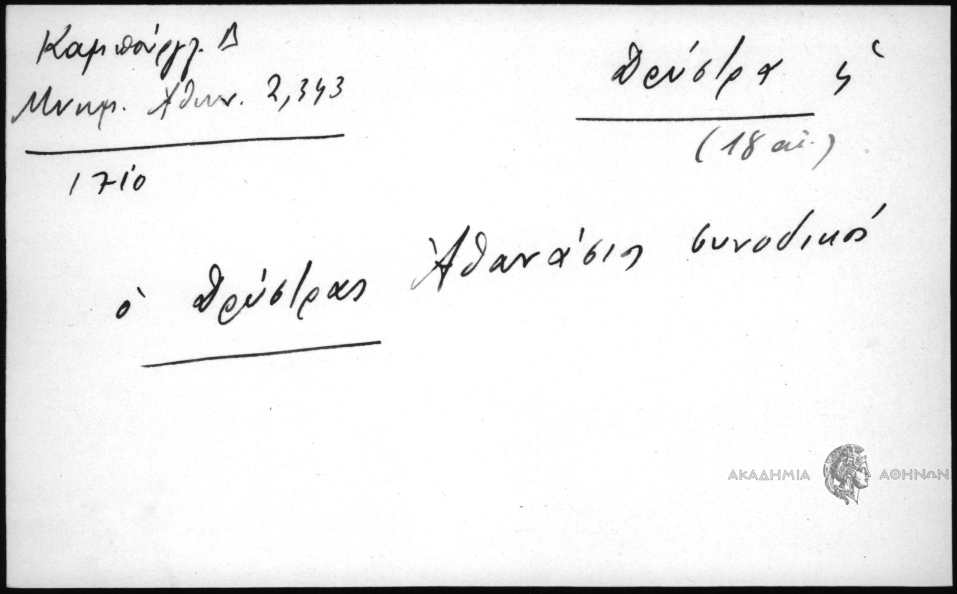 Καμπούργλ. Δ
Μνημ. Ἀθην. 2,343
1710
Δρύστρα ἡ
(18 αἰ.)
ὁ Δρύστρας Ἀθανάσιος συνοδικός
ΑΚΑΔΗΜΙΑ ΑΘΗΝΩΝ